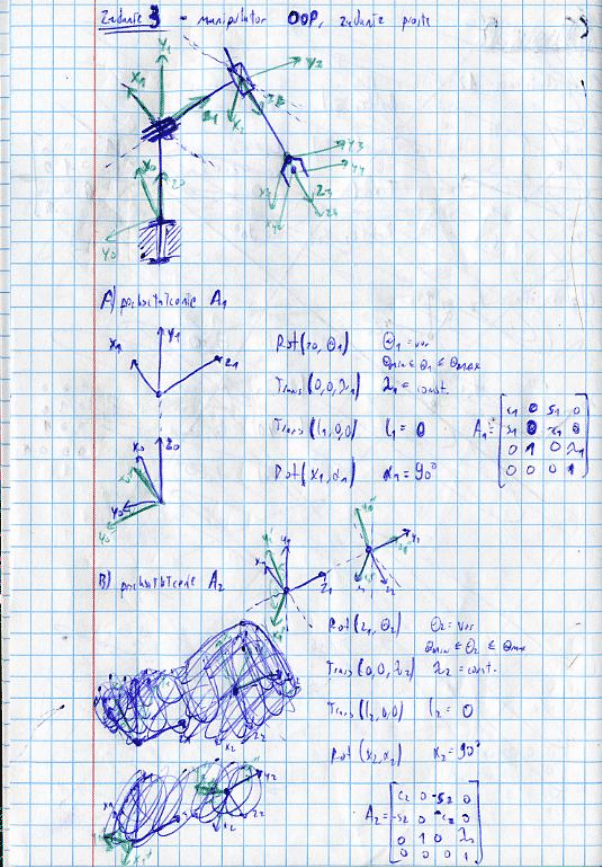 Zadanie 3 - manipulator OOP, zadanie proste
y1
x1
y2
z1
x2
x0
z0
y3
y4
z3
y0
A) przekształcenie A1
x1
y1
z1
Rot(z0, Θ1) Θ1 = var
Θmin ≤ Θ1 ≤ Θmax
Trans(0,0,λ1) λ1 = const.
Trans(l1,0,0) l1 = 0
Rot(x1,α1) α1 = 90°
A1=
c1 0 s1 0
s1 0 -c1 0
0 1 0 λ1
0 0 0 1
x0
z0
y0
B) przekształcenie A2
z1
Rot(z1, Θ2) Θ2 = var
Θmin ≤ Θ2 ≤ Θmax
Trans(0,0,λ2) λ2 = const.
Trans(l2,0,0) l2 = 0
Rot(x2,α2) α2 = 90°
A2=
c2 0 -s2 0
-s2 0 -c2 0
0 1 0 λ2
0 0 0 1